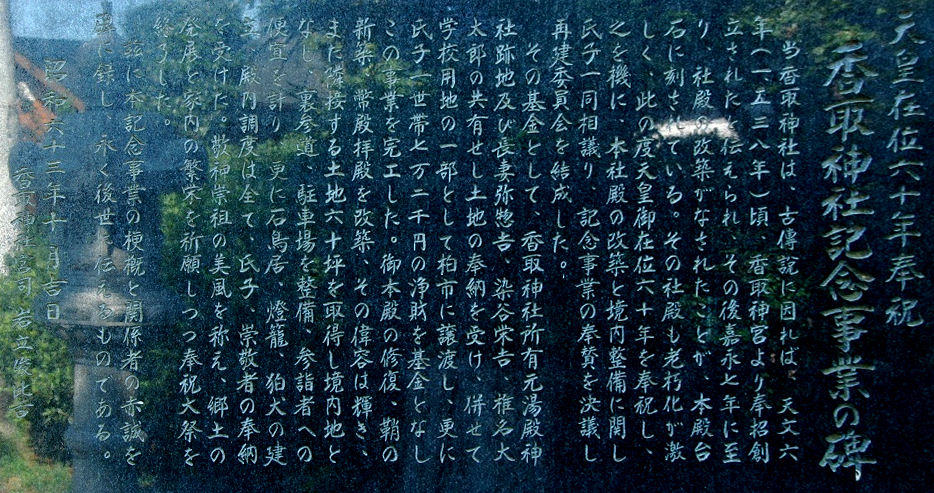 天皇在位六十年奉祝
香取神社記念事業の碑
当香取神社は、古傳説に因れば、天文六
年(一五三八年)頃、香取神宮より奉招創
立されたと伝えられ、その後嘉永七年に至
り、社殿の改築がなされたことが、本殿台
石に刻されている。その社殿も老朽化が激
しく、此の度天皇御在位六十年を奉祝し、
之を機に、本社殿の改築と境内整備に関し
氏子一同相議り、記念事業の奉賛を決議し
再建委員会を結成した。
その基金として、香取神社所有元湯殿神
社跡地及び長妻弥惣吉、染谷栄吉、椎名大
太郎の共有せし土地の奉納を受け、併せて
学校用地の一部として柏市に譲渡し、更に
氏子一世帯七万二千円の浄財を基金となし
この事業を完工した。御本殿の修復、鞘の
新築、幣殿拝殿を改築、その偉容は輝き、
また隣接する土地六十坪を取得し境内地と
なし、裏参道、駐車場を整備、参詣者への
便宜を計り、更に石鳥居、燈籠、狛犬の建
立、殿内調度は全て、氏子、崇敬者の奉納
を受けた。敬神崇祖の美風を称え、郷土の
発展と家内の繁栄を祈願しつつ奉祝大祭を
終了した。
茲に本記念事業の梗概と関係者の赤誠を
碑に録し、永く後世に伝えるものである。
昭和六十三年十月吉日
香取神社宮司